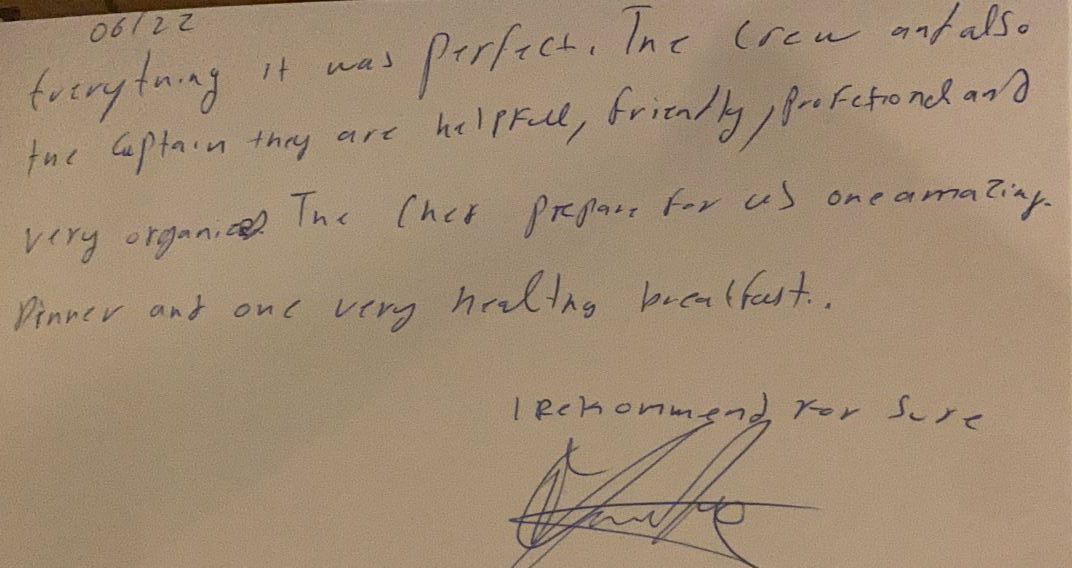 06/22
Everything it was perfect. The crew and also
the captain they are helpfull, friendly, profetional and
very organised. The Chef prepare for us one amazing
Dinner and one very healthy breakfast..
I rekommend for sure